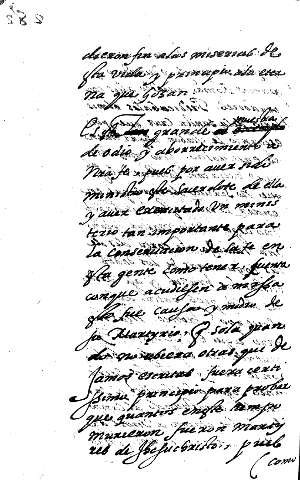 dieron fin a las miserias de
esta vida y principio a la eter
na que Gozan.
Es tan grande muestra
de odio y aborrecimiento a
nra fe pues por aver sido
ministro y sacerdote de ella
y aver exercitado un minis
terio tan importante para
la conservacion de la fe en
esta gente como tener fuerza
conque acudiesen a missa
que fue causa y motivo de
su Martyrio, que sola quan
do no ubiera otras que de
jamos escritas fuera certi
ssimo principio para probar
que quantos en este tiempo
murieron fueron marty
res de Jhesuchristo, pues
como